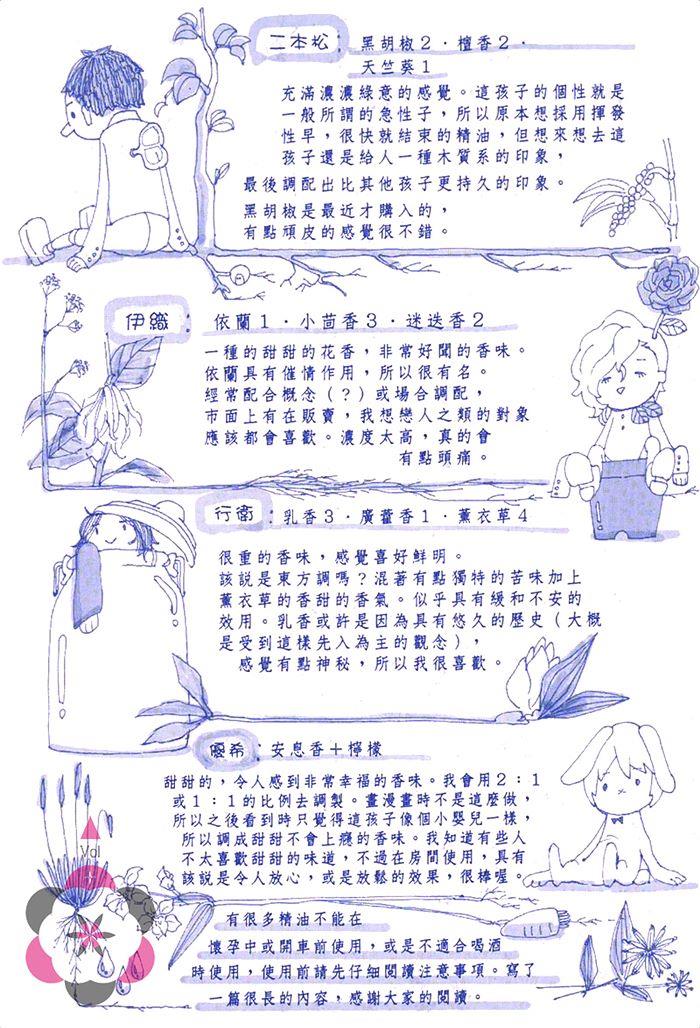 二本松：黑胡椒2．檀香2．
天竺葵1
充滿濃濃綠意的感覺。這孩子的個性就是
一般所謂的急性子，所以原本想採用揮發
性早，很快就結束的精油，但想來想去這
孩子還是給人一種木質系的印象，
最後調配出比其他孩子更持久的印象。
黑胡椒是最近才購入的，
有點頑皮的感覺很不錯。
伊織：依蘭1．小茴香3．迷迭香2
一種的甜甜的花香，非常好聞的香味。
依蘭具有催情作用，所以很有名。
經常配合概念（？）或場合調配，
市面上有在販賣，我想戀人之類的對象
應該都會喜歡。濃度太高，真的會
有點頭痛。
行衛：乳香3．廣藿香1．薰衣草4
很重的香味，感覺喜好鮮明。
該說是東方調嗎？混著有點獨特的苦味加上
薰衣草的香甜的香氣。似乎具有緩和不安的
效用。乳香或許是因為具有悠久的歷史（大概
是受到這樣先入為主的觀念），
感覺有點神秘，所以我很喜歡。
優希：安息香＋檸檬
甜甜的，令人感到非常幸福的香味。我會用2：1
或1：1的比例去調製。畫漫畫時不是這麼做，
所以之後看到時只覺得這孩子像個小嬰兒一樣，
所以調成甜甜不會上癮的香味。我知道有些人
不太喜歡甜甜的味道，不過在房間使用，具有
該說是令人放心，或是放鬆的效果，很棒喔。
有很多精油不能在
懷孕中或開車前使用，或是不適合喝酒
時使用，使用前請先仔細閱讀注意事項。寫了
一篇很長的內容，感謝大家的閱讀。